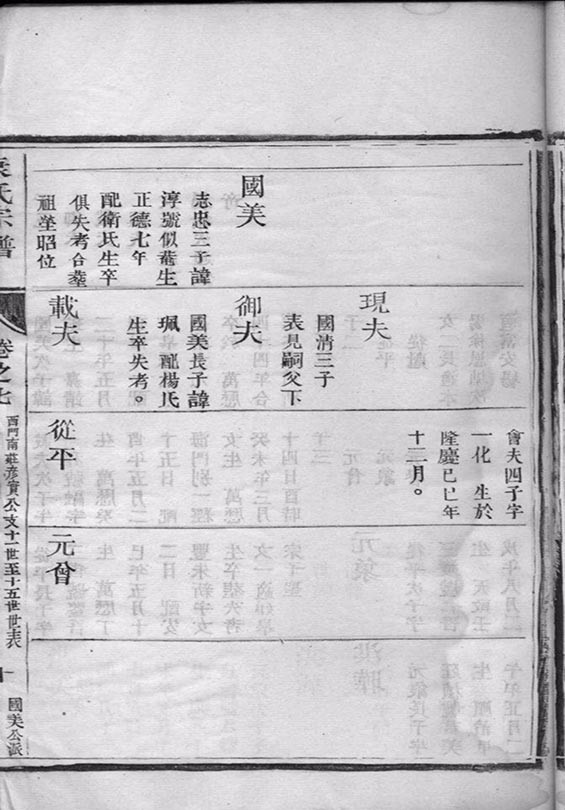 會夫四子字
一化 生於
隆慶己巳年
十二月。
現夫
國清三子
表見嗣父下
國美
志忠三子諱
淳號似葊生
正德七年
配衛氏生卒
俱失考合塟
祖塋昭位
御夫
國美長子諱
珮 配楊氏
生卒失考。
載夫
從平
元曾
袁氏宗譜
卷之七
西門南莊彦實公支十一世至十五世世表
十
國美公派